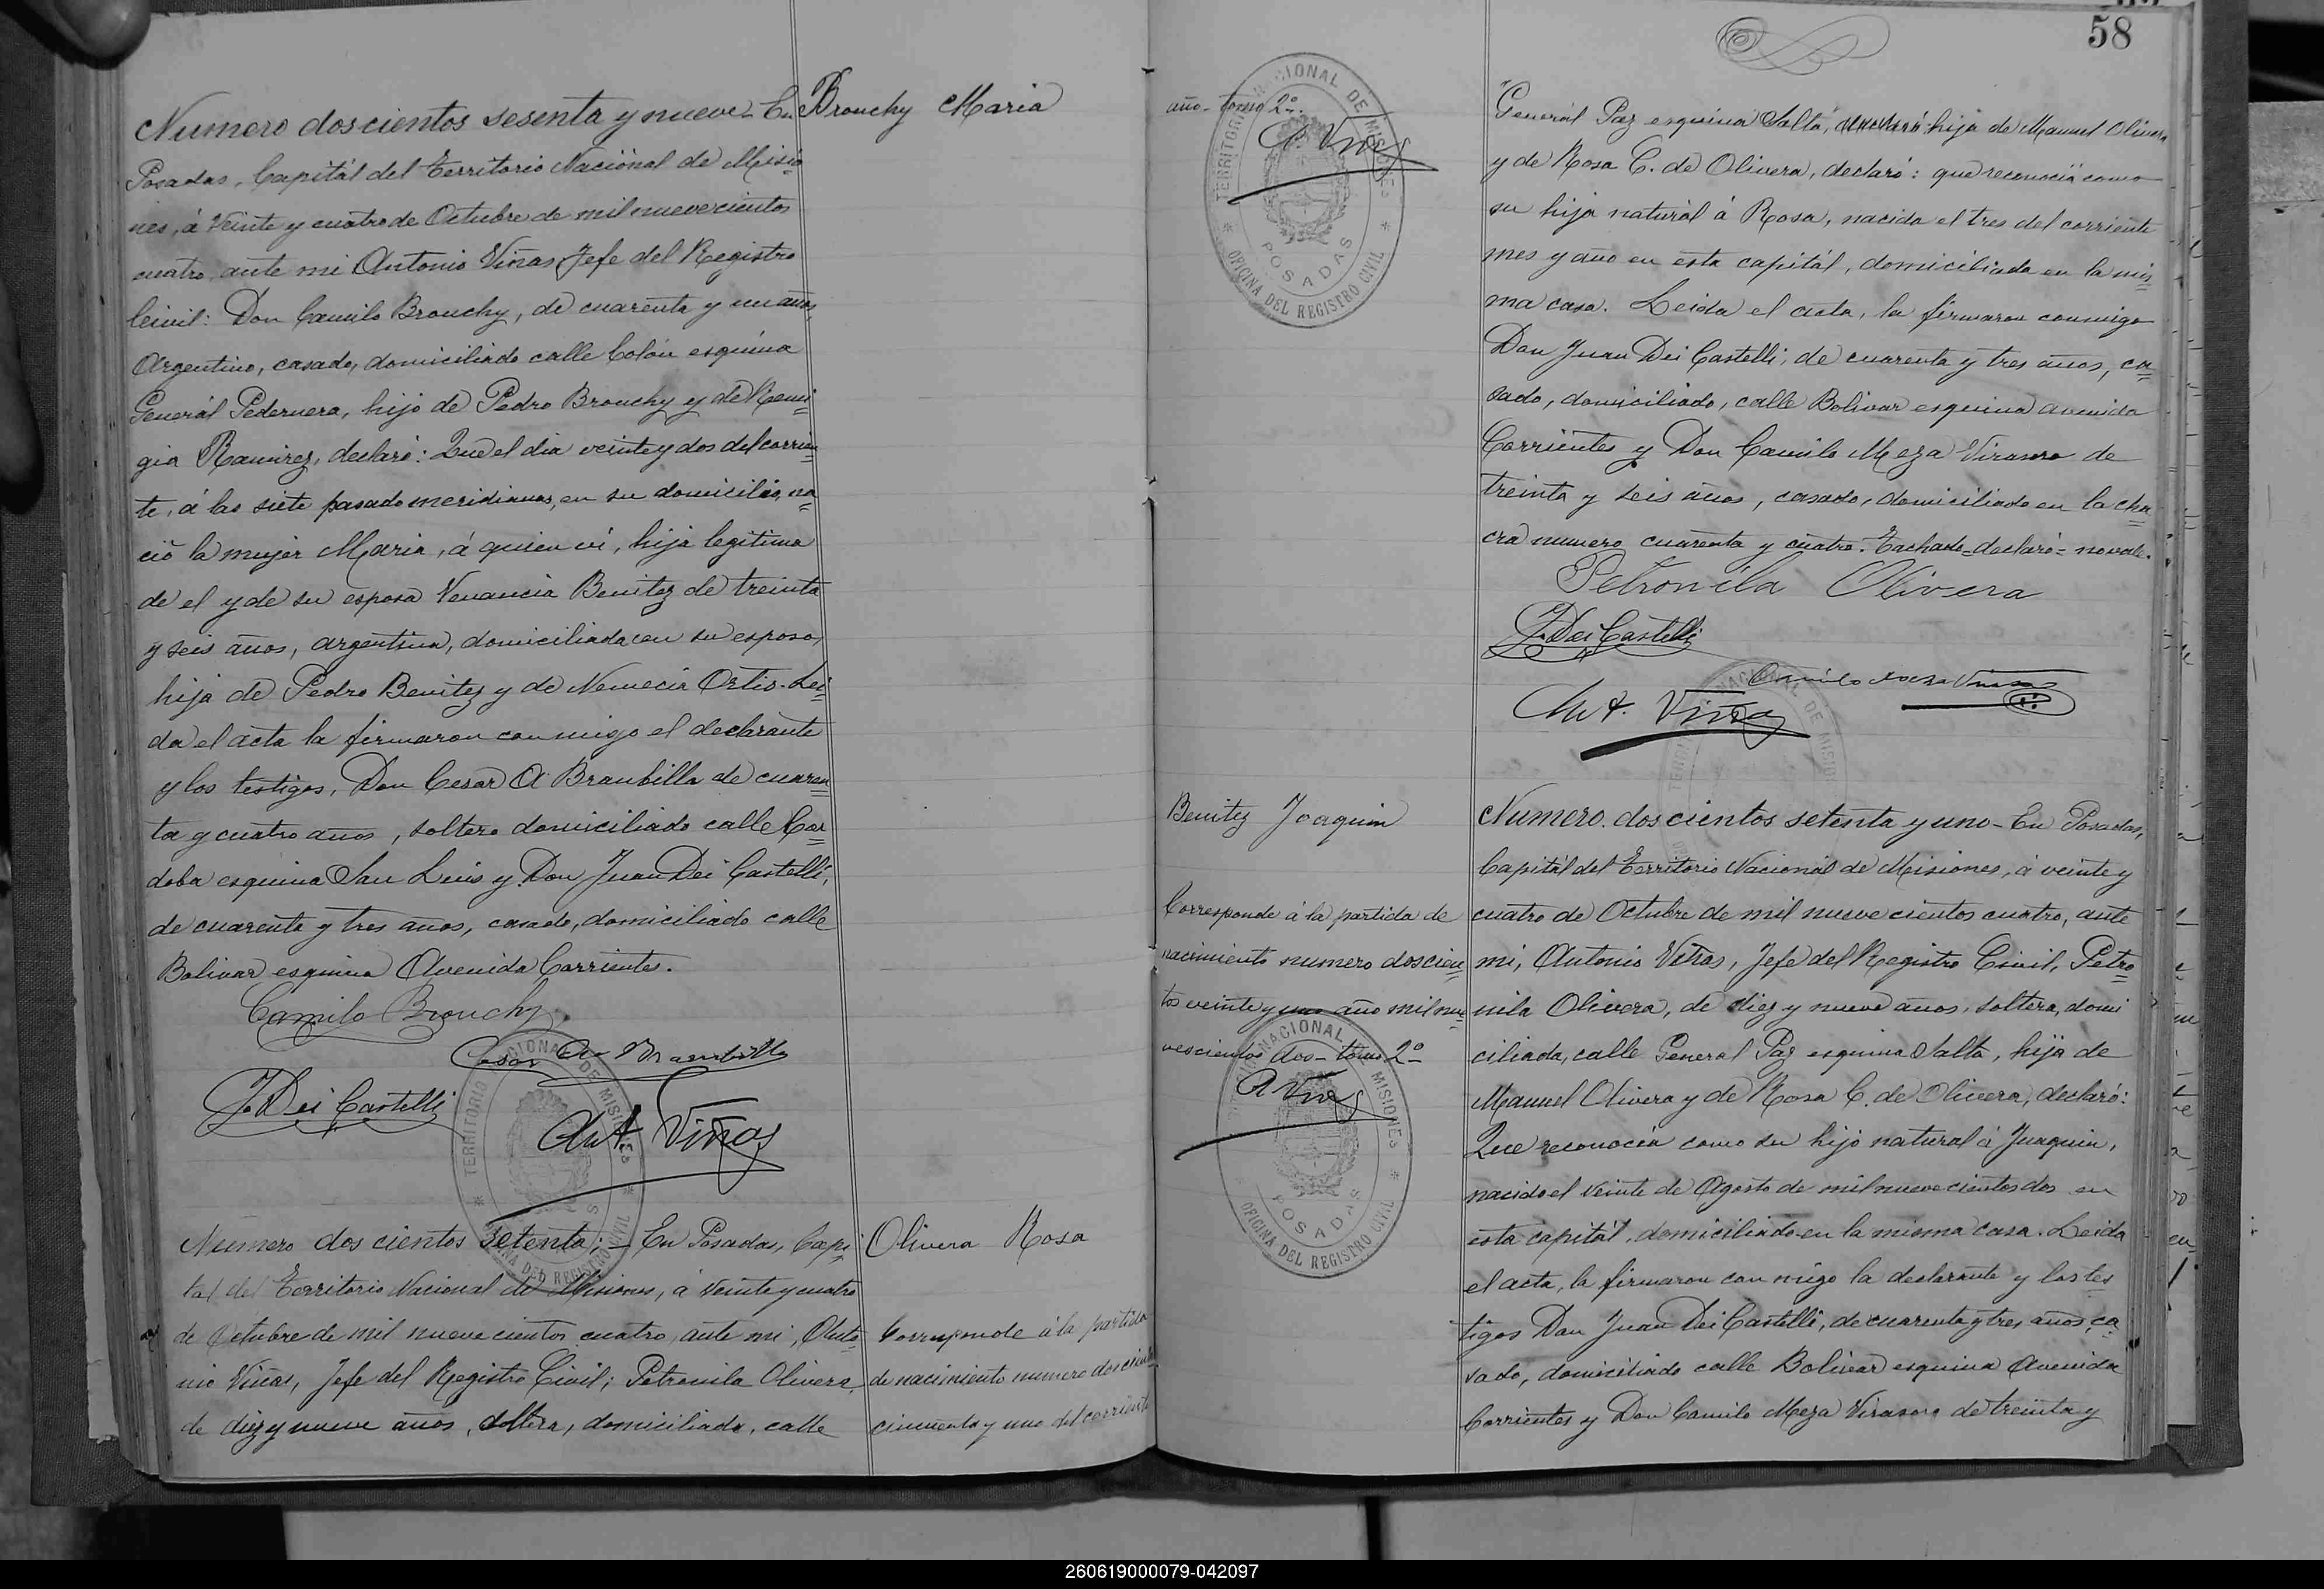 Numero doscientos sesenta y nueve. En
Posadas, Capitál del Territorio Nacional de Misio
nes, á veinte y cuatro de Octubre de mil nuevecientos
cuatro, ante mi Antonio Viñas, Jefe del Registro
Civil: Don Camilo Brouchy, de cuarenta y un años,
Argentino, casado, domiciliado calle Colón esquina
General Pedernera, hijo de Pedro Brouchy y de Remi
gia Ramirez, declaró: Que el dia veinte y dos del corrien
te, á las siete pasado meridianas, en su domicilio, na
ció la mujer Maria, á quien ví, hija legitima
de el y de su esposa Venancia Benitez de treinta
y seis años, argentina, domiciliada con su esposo,
hija de Pedro Benitez y de Nemecia Ortis. Lei
da el acta la firmaron conmigo el declarante
y los testigos, Don Cesar A Brambilla de cuaren
ta y cuatro años, soltero domiciliado calle Cor
doba esquina San Luis y Don Juan Dei Castelli,
de cuarenta y tres años, casado, domiciliado calle
Bolivar esquina Avenida Corrientes.
Camilo Brouchy
Cesar A Brambilla
J. Dei Castelli
Ant. Viñas
Brouchy Maria
Numero doscientos setenta; - En Posadas, Capi
tal del Territorio Nacional de Misiones, á veinte y cuatro
de Octubre de mil nuevecientos cuatro, ante mi, Anto
nio Viñas, Jefe del Registro Civil; Petronila Olivera,
de diez y nueve años, soltera, domiciliada, calle
Olivera Rosa
Corresponde á la partida
de nacimiento numero doscientos
cincuenta y uno del corriente
año - tomo 2º
A Viñas
TERRITORIO NACIONAL DE MISIONES
POSADAS
OFICINA DEL REGISTRO CIVIL
58
General Paz esquina Salta, hija de Manuel Olivera
y de Rosa C. de Olivera, declaró: que reconocia como
su hija natural á Rosa, nacida el tres del corriente
mes y año en esta capitál, domiciliada en la mis
ma casa. Leida el acta, la firmaron conmigo
Don Juan Dei Castelli, de cuarenta y tres años, ca
sado, domiciliado, calle Bolivar esquina avenida
Corrientes y Don Camilo Meza Virasoro de
treinta y seis años, casado, domiciliado en la cha
cra numero cuarenta y cuatro. Tachado=declaró=no vale.
Petronila Olivera
J. Dei Castelli
Camilo Meza Virasoro
Ant. Viñas
Benitez Joaquin
Corresponde á la partida de
nacimiento numero doscien
tos veinte y uno año mil nue
vescientos dos - tomo 2º
A Viñas
TERRITORIO NACIONAL DE MISIONES
POSADAS
OFICINA DEL REGISTRO CIVIL
Numero doscientos setenta y uno - En Posadas,
Capitál del Territorio Nacional de Misiones, á veinte y
cuatro de Octubre de mil nuevecientos cuatro, ante
mi, Antonio Viñas, Jefe del Registro Civil, Petro
nila Olivera, de diez y nueve años, soltera, domi
ciliada, calle General Paz esquina Salta, hija de
Manuel Olivera y de Rosa C. de Olivera, declaró:
Que reconocia como su hijo natural á Juaquin,
nacido el veinte de Agosto de mil nuevecientos dos en
esta capitál, domiciliado en la misma casa. Leida
el acta, la firmaron conmigo la declarante y los tes
tigos Don Juan Dei Castelli, de cuarenta y tres años, ca
sado, domiciliado calle Bolivar esquina Avenida
Corrientes y Don Camilo Meza Virasoro de treinta y
260619000079-042097